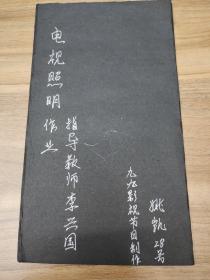 电视照明作业
指导教师李兴国
九九影视节目制作
姚凯 28号